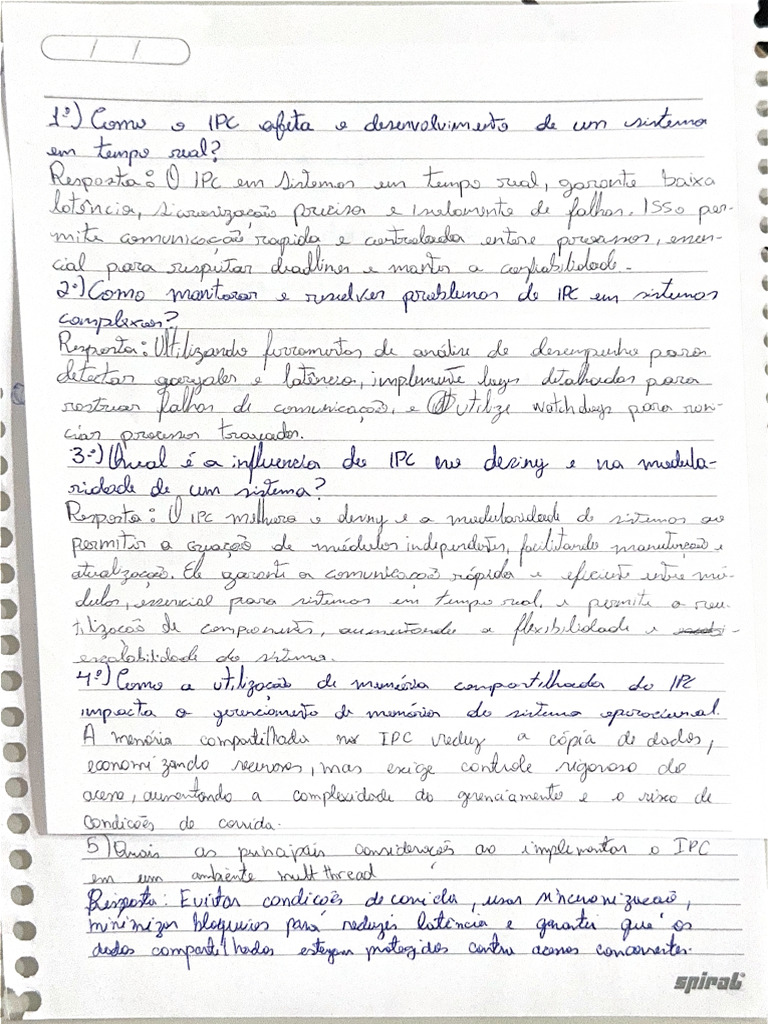 1º) Como o IPC afeta o desenvolvimento de um sistema
em tempo real?
Resposta: O IPC em Sistemas em tempo real, garante baixa
latência, sicronização precisa e isolamento de falhas. Isso per-
mite comunicação rapida e controlada entre processos, essen-
cial para respeitar deadlines e manter a confiabilidade.
2º) Como monitorar e resolver problemas de IPC em sistemas
complexos?
Resposta: Utilizando ferramentas de análise de desempenho para
detectar gargalos e latência, implemente logs detalhados para
rastrear falhas de comunicação, e utilize watchdogs para
processos travados.
3º) Qual é a influencia do IPC no desing e na modula-
ridade de um sistema?
Resposta: O IPC melhora o desing e a modularidade de sistemas ao
permitir a criação de módulos independentes, facilitando manutenção e
atualização. Ele garante a comunicação rápida e eficiente entre mó-
dulos, essencial para sistemas em tempo real, e permite a reu-
tilização de componentes, aumentando a flexibilidade e
escalabilidade do sistema.
4º) Como a utilização de memória compartilhada do IPC
impacta o gerenciamento de memória do sistema operacional.
A memória compartilhada no IPC reduz a cópia de dados,
economizando recursos, mas exige controle rigoroso de
acesso, aumentando a complexidade do gerenciamento e o risco de
condições de corrida.
5) Quais as principais considerações ao implementar o IPC
em um ambiente multthread
Resposta: Evitar condições de corrida, usar sincronização,
minimizar bloqueios para reduzir latência e garantir que os
dados compartilhados estejam protegidos contra acessos concorrentes.
spiral